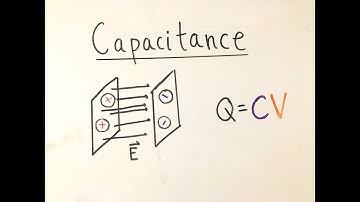 Capacitance
+ −
+ −
Q=CV
E⃗